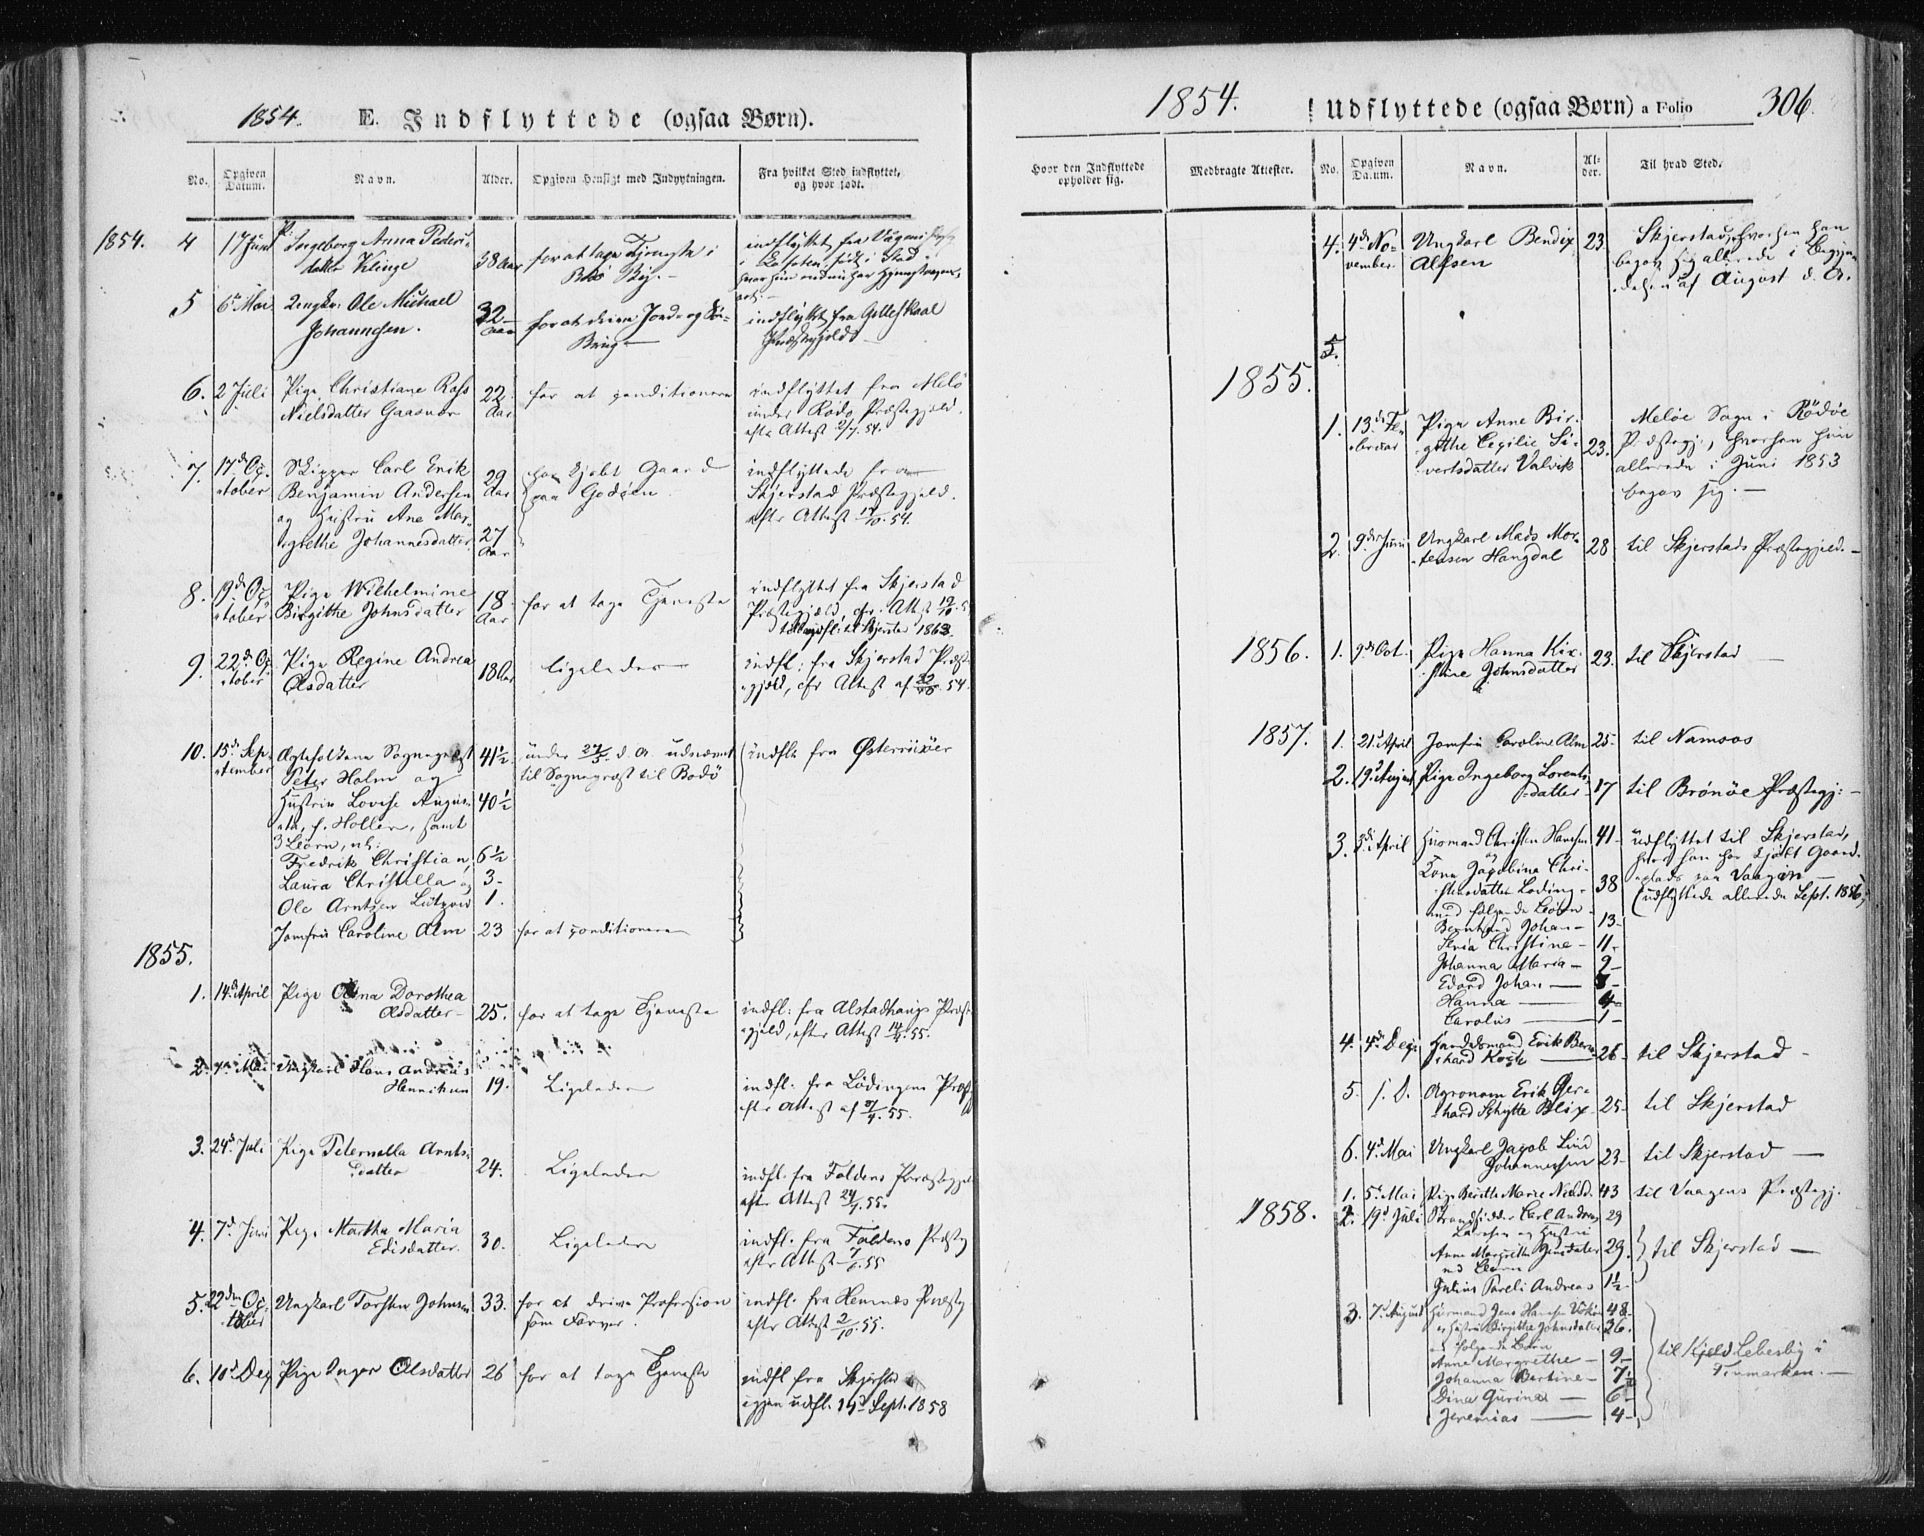 1854. E. Indflyttede (ogsaa Børn).
No. Opgiven Datum. Navn. Alder. Opgiven Hensigt med Indflytningen. Fra hvilket Sted indflyttet, og hvor født.
1854. 4 17 Juni Ingeborg Anna Peders
datter Klinge 38 Aar for at tage Tjeneste i
Bodø By.
indflyttet fra Vaagen
i Lofoten, født i
5 6te Mai Ungk. Ole Michael
Johannesen. 32 Aar for at drive Jordbrug
indflyttet fra Gilleskaal
Præstegjeld
6. 2 Juli Pige Christiane
Nielsdatter 22 Aar for at conditionere
indflyttet fra Melö
under Rödö Præstegjeld.
efter Attest 2/7 54.
7. 17de Oc
tober Skipper Carl Erik
Benjamin Andersen
og Hustru Ane Mar
grethe Johannesdatter 29 Aar 27 Aar har kjøbt Gaard
paa Godøen
indflyttede fra
Skjerstad Præstegjeld.
efter Attest 17/10. 54.
8. 19de Oc
tober Pige Wilhelmine
Birgithe Johnsdatter 18 Aar for at tage Tjeneste
indflyttet fra Skjerstad
Præstegjeld, cfr. Attest 19/10
9. 22de Oc
tober Pige Regine Andrea
Olsdatter 18 Aar Ligeledes
indfl: fra Skjerstad Præste
gjeld, cfr Attest af 22/10. 54.
10. 15de Sep
tember Ægtefolkene Sognepræst
Peter Holm og
Hustru Lovise Augus
ta, f. Holler, samt
3 Börn, nl:
Fredrik Christian
Laura Christella og
Ole Arntzen Lützow
41½ 40½ 6½ 3 1.
under 27/5 d. A. udnævnt
til Sognepræst til Bodö
indfl. fra Østerriisöer
Jomfru Caroline Alm 23 for at conditionere
1855.
1. 14de April Pige Dorothea
Olsdatter 25. for at tage Tjeneste
indfl: fra Alstadhaugs Præste
gjeld, efter Attest 14/4. 55.
2. Mai Ungkarl Hans Andreas
Henriksen 19. Ligeledes
indfl. fra Lödingens Præst
efter Attest af
3. 24de Juli Pige Peternella Arnts
datter 24. Ligeledes
indfl. fra Foldens Præstegjeld
efter Attest 24/7. 55.
4. 7de Juni Pige Martha Maria
Edisdatter 30. Ligeledes
indfl. fra Foldens Præstg
efter Attest 7/6. 55
5. 22den Oc
tober Ungkarl Torsten Johnsen 33. for at drive Profession
som Farver.
indfl. fra Hemnæs Præstg
efter Attest 2/10. 55.
6. 10de Dec Pige Inger Olsdatter 26 for at tage Tjeneste
indfl fra Skjerstad
igjen udfl. 19de Sept. 1858
1854. Udflyttede (ogsaa Børn) a Folio 306.
Hvor den Indflyttede opholder sig. Medbragte Attester. No. Opgiven Datum. Navn. Alder. Til hvad Sted.
4. 4de No
vember. Ungkarl Bendix
Alfsen 23.
Skjerstad, hvorhen han
begav sig allerede i Begyn
delsen af August d. A.
5.
1855.
1. 13de Fe
bruar Pige Anne Bir
githe Cecilie Si
vertsdatter Valvik 23.
Meløe Sogn i Rödöe
Præstegj., hvorhen hun
allerede i Juni 1853
begav sig.
2. 9de Juni Ungkarl Mads Mor
tensen Hangdal 28 til Skjerstads Præstegjeld.
1856. 1. 9de Oct. Pige Hanna Kir
stine Johnsdatter 23. til Skjerstad
1857. 1. 21de April Jomfru Caroline Alm 25. til Namsos
2. 19de August Pige Ingeborg Lorents
datter 17 til Brönöe Præstegj:
3. 3de April Husmand Christen Hansen
og
Kone Jacobine Chri
stensdatter Loding
med følgende Börn
Bernhard Johan
Christine
Johanna Maria
Edvard Johan
Hanna
Carolus
41 38 13 11. 9 4 1
udflyttet til Skjerstad,
hvor han har kjøbt Gaard
paa Vaagan
(udflyttede allerede Sept. 1856)
4. 4de Dec Handelsmand Erik Bern
hard Koch 26 til Skjerstad
5. s. D. Agronom Erik Ger
hard Schytte Blix 25 til Skjerstad
6. 4de Mai Ungkarl Jacob Lind
Johannessen 23 til Skjerstad
1858. 1. 5te Mai Pige Berithe Marie Nielsd. 43 til Vaagens Præstegj.
2. 19de Juli Strandsidder Carl Andreas
Larsen og Hustru
Anne Margrethe Jensdatter
med Barn
Julius Pareli Andreas
29 29. 1½ til Skjerstad
3. 7de August Husmand Jens Hansen
og Hustru Birgithe Johnsdatter
og følgende Börn
Anne Margrethe
Johanna Bertine
Dina Gurine
Jeremias
48 36. 9 7 6 4
til Lebesby i
Finmarken.